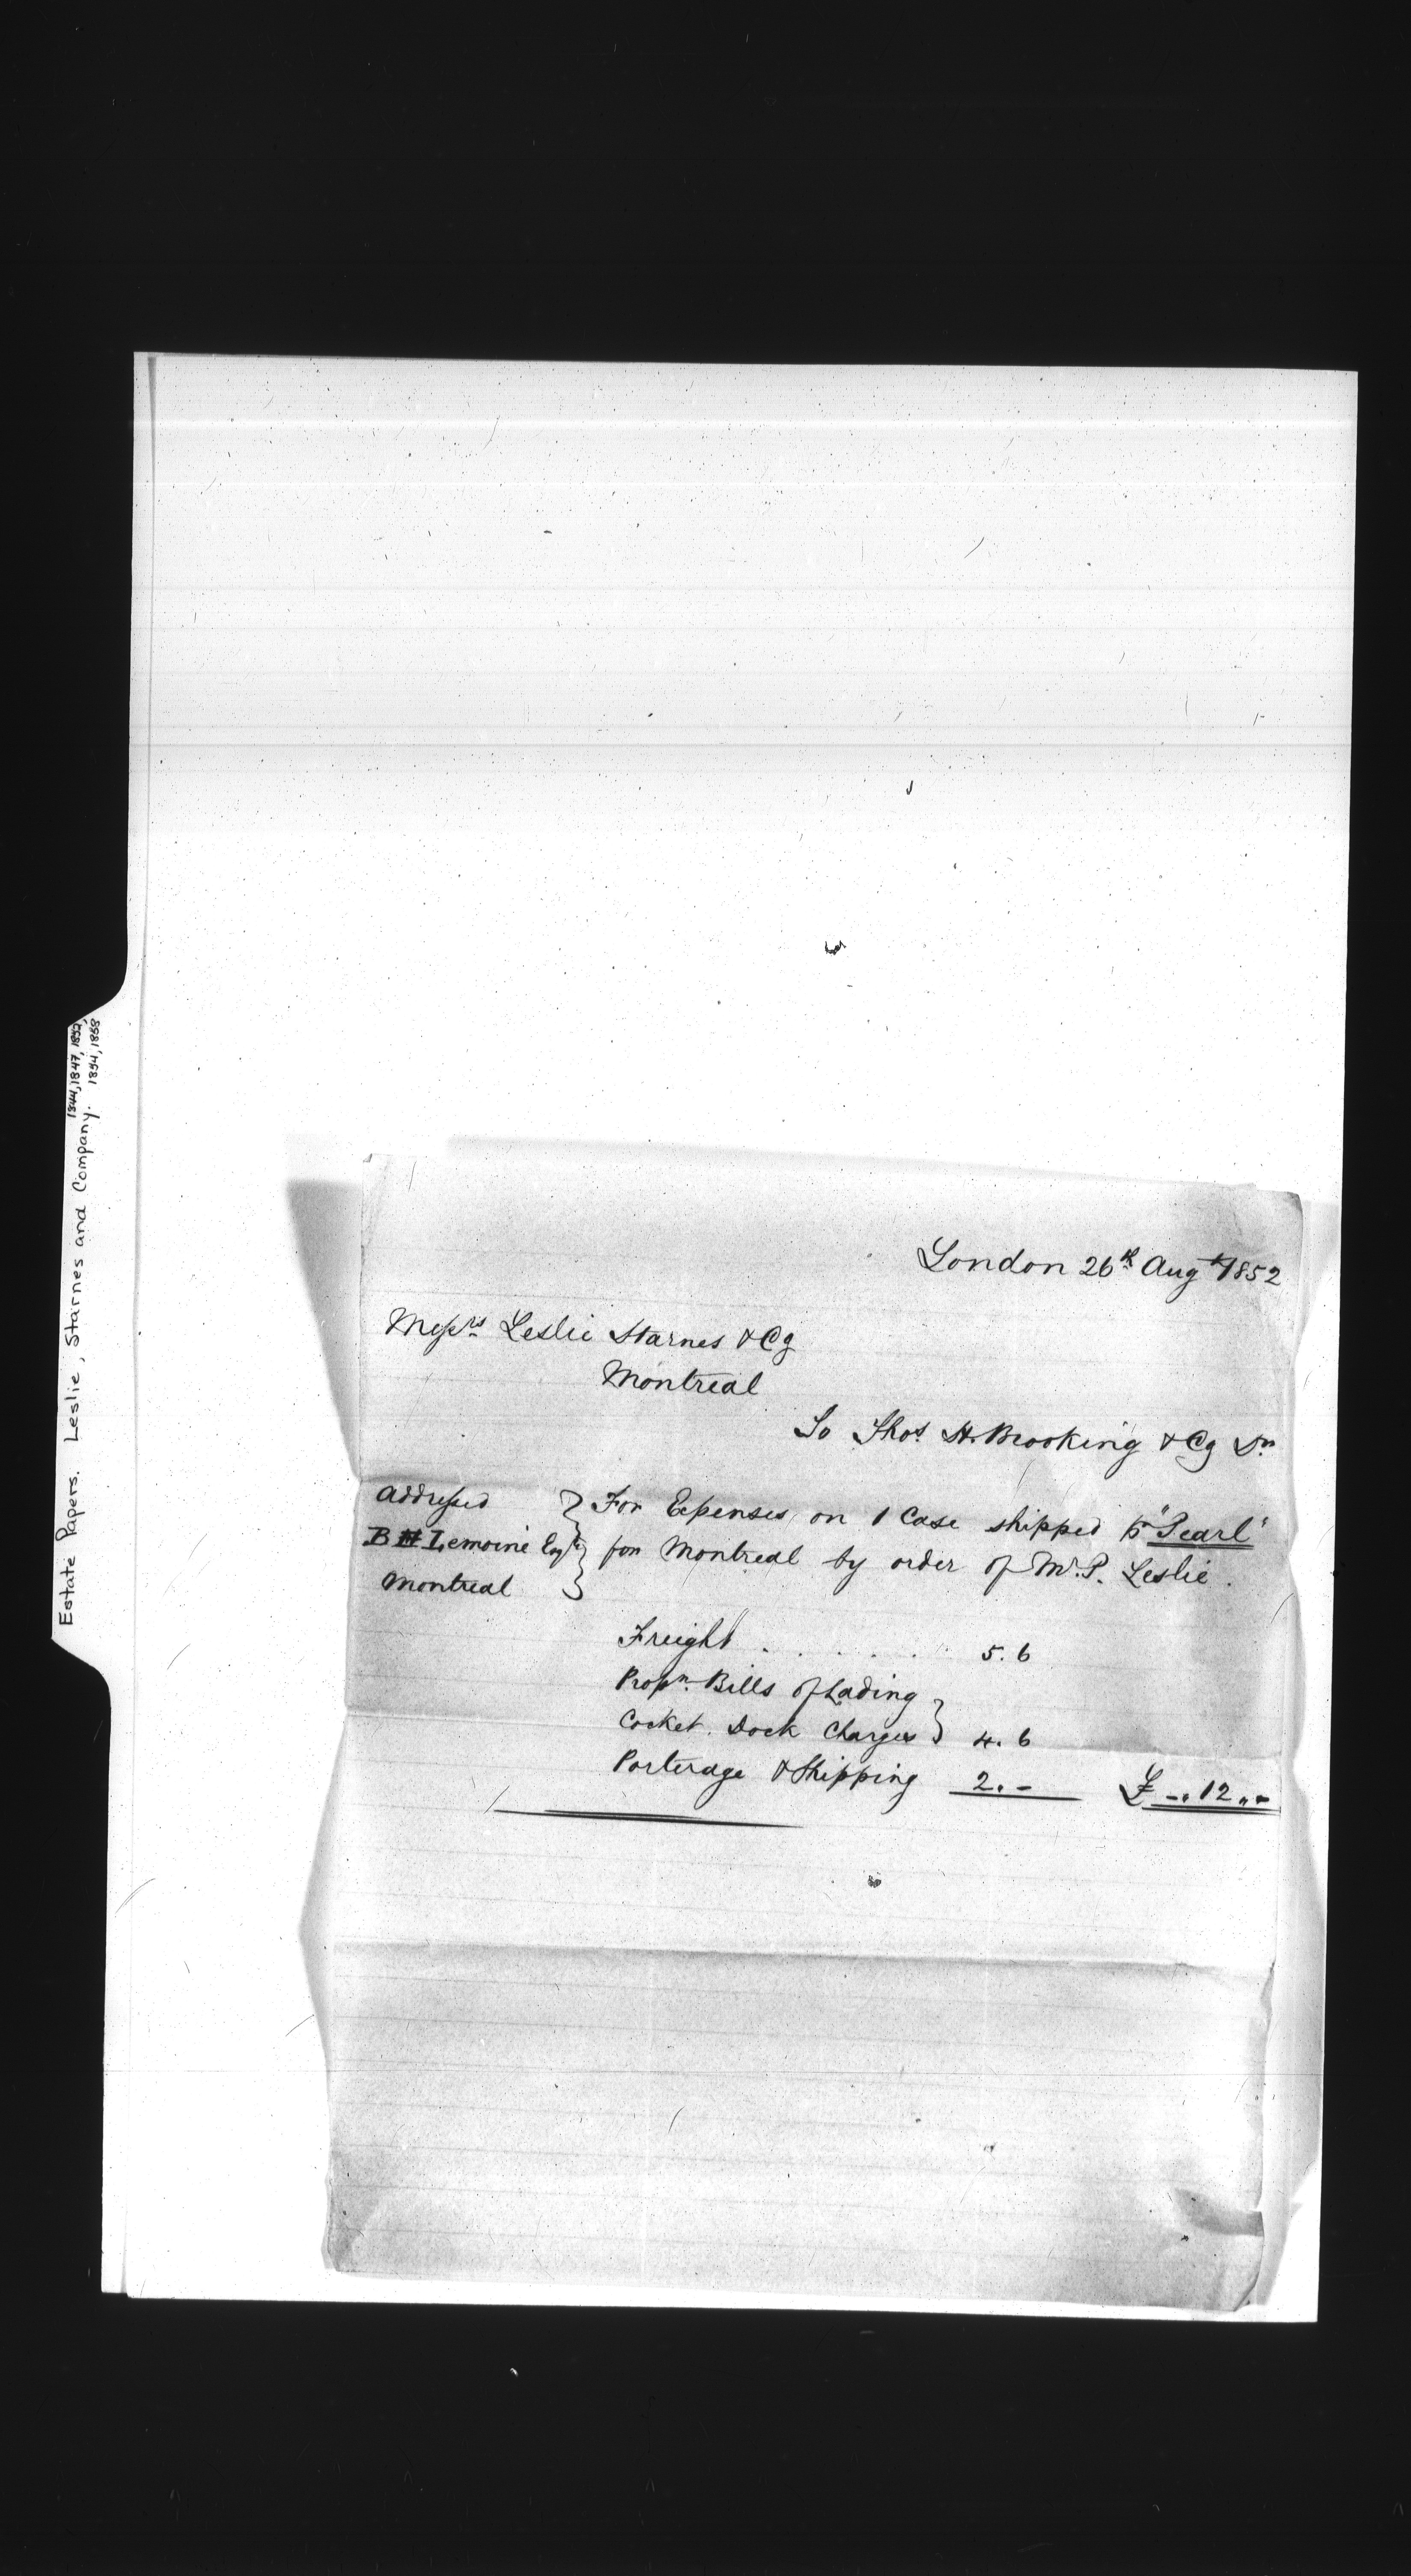 Estate Papers. Leslie, Starnes and Company. 1844, 1847, 1852, 1854, 1858
London 26th Augt 1852
Messrs Leslie Starnes & Co
Montreal
To Thos. H. Brooking & Co Dr.
Addressed
B H Lemoine Esqr
Montreal
For Expenses on 1 Case shipped pr "Pearl"
for Montreal by order of Mr. P. Leslie.
Freight . . . . . . 5. 6
Propn. Bills of Lading
Cocket. Dock Charges 4. 6
Porterage & Shipping 2. - £ -.. 12 .. -